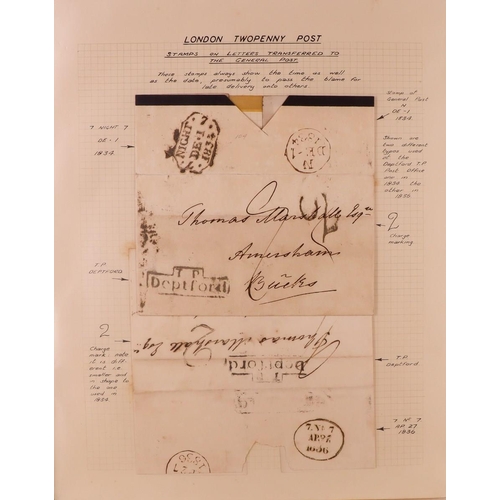 LONDON TWOPENNY POST
STAMPS ON LETTERS TRANSFERRED TO
THE GENERAL POST.
These stamps always show the time as well
as the date, presumably to pass the blame for
late delivery onto others.
7 NIGHT 7
DE - 1
1834.
Stamp of
General Post
N
DE - 1
1834
Shown are
two different
types used
at the
Deptford T.P.
Post Office
one in
1834 the
other in
1836.
2
Charge
marking.
T.P.
DEPTFORD
2
Charge
mark: note
it is diff-
erent i.e.
smaller and
in shape to
the one
used in
1834
T.P.
Deptford
7 Nt 7
AP 27
1836
7
NIGHT
DE - 1
1834
Thomas Marshalle Esqre
Amersham
Bucks
T.P
Deptford
Thomas Marshalle Esqr
T.P
Deptford
7. NT. 7
1836